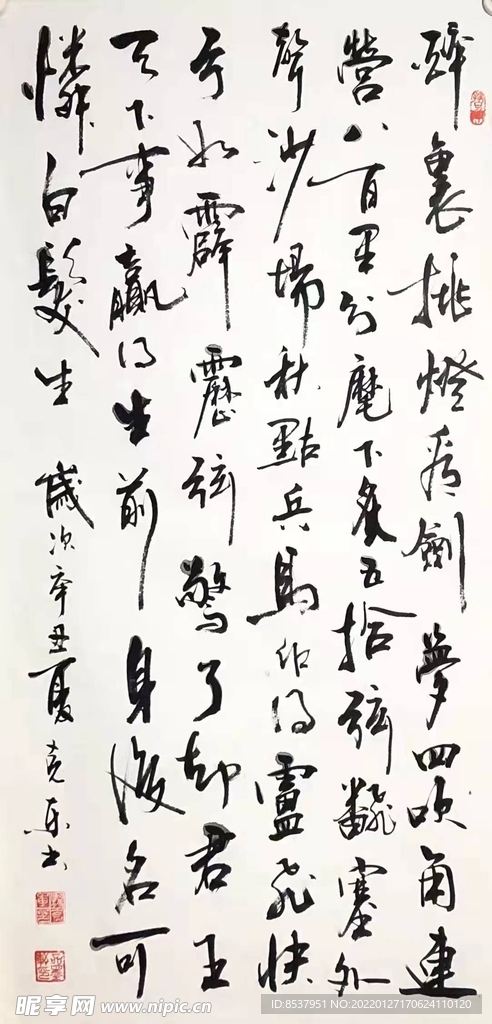 醉裏挑燈看劍夢回吹角連
營八百里分麾下炙五拾弦翻塞外
聲沙場秋點兵馬作的盧飛快
弓如霹靂弦驚了却君王
天下事贏得生前身後名可
憐白髮生
歲次辛丑夏 书
昵享网 www.nipic.cn
ID:8537951 NO:20220127170624110120